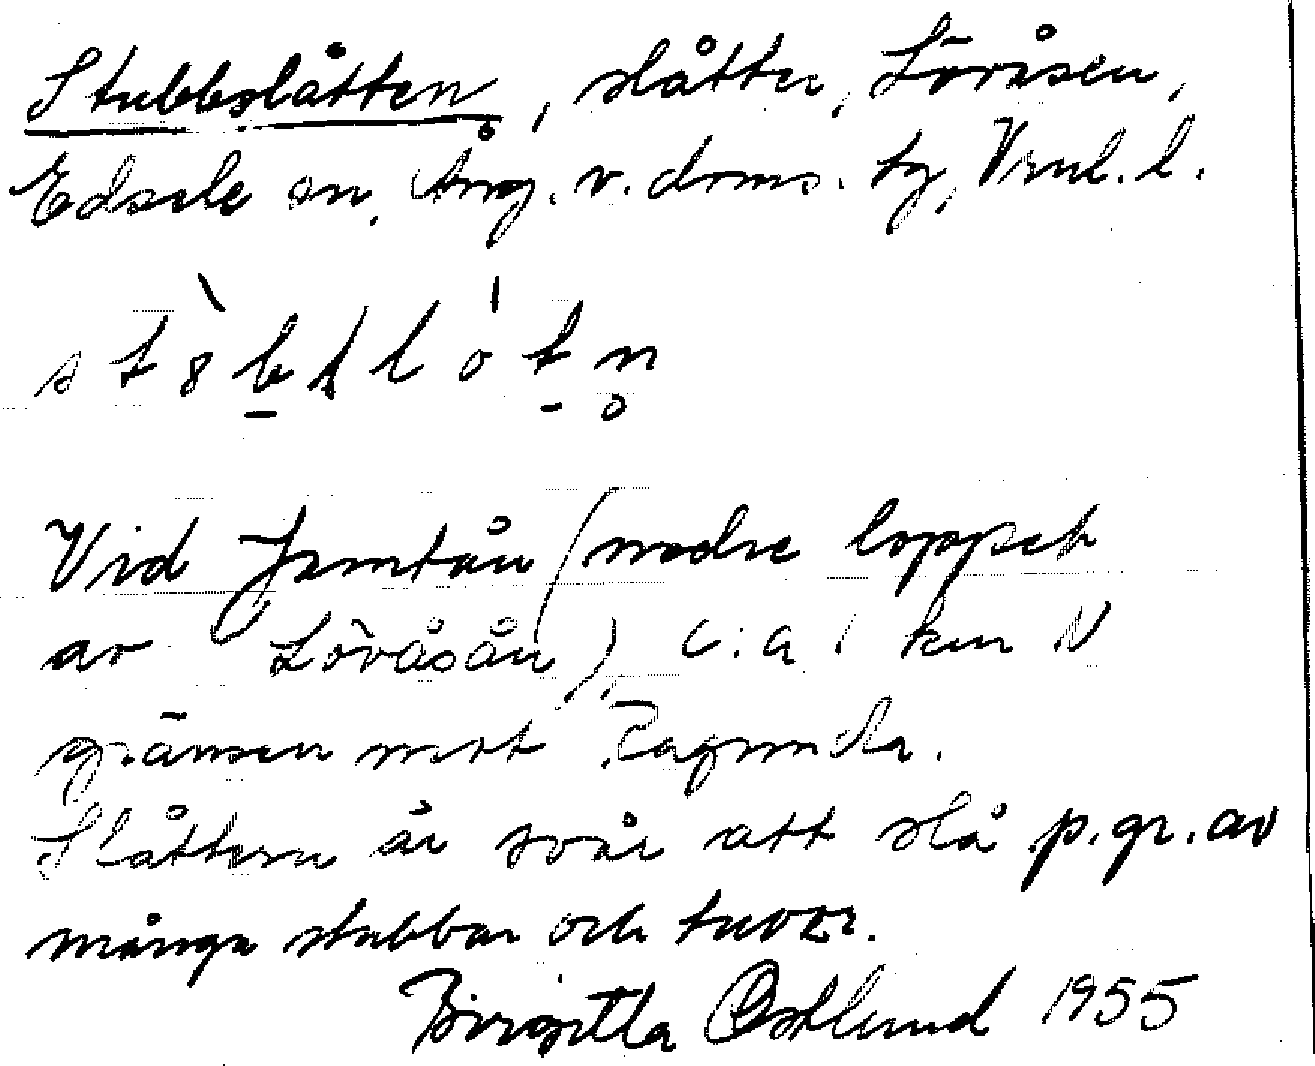 Stubbslåtten, slåtter, Lövåsen,
Edsele sn, Ång. v. doms. tg, Vnl. l.
Vid Jamtån (nedre loppet
av Lövåsån), c:a 1 km N
gränsen mot Ragunda.
Slåttern är svår att slå p.gr.av
många stubbar och tuvor.
Birgitta Östlund 1955